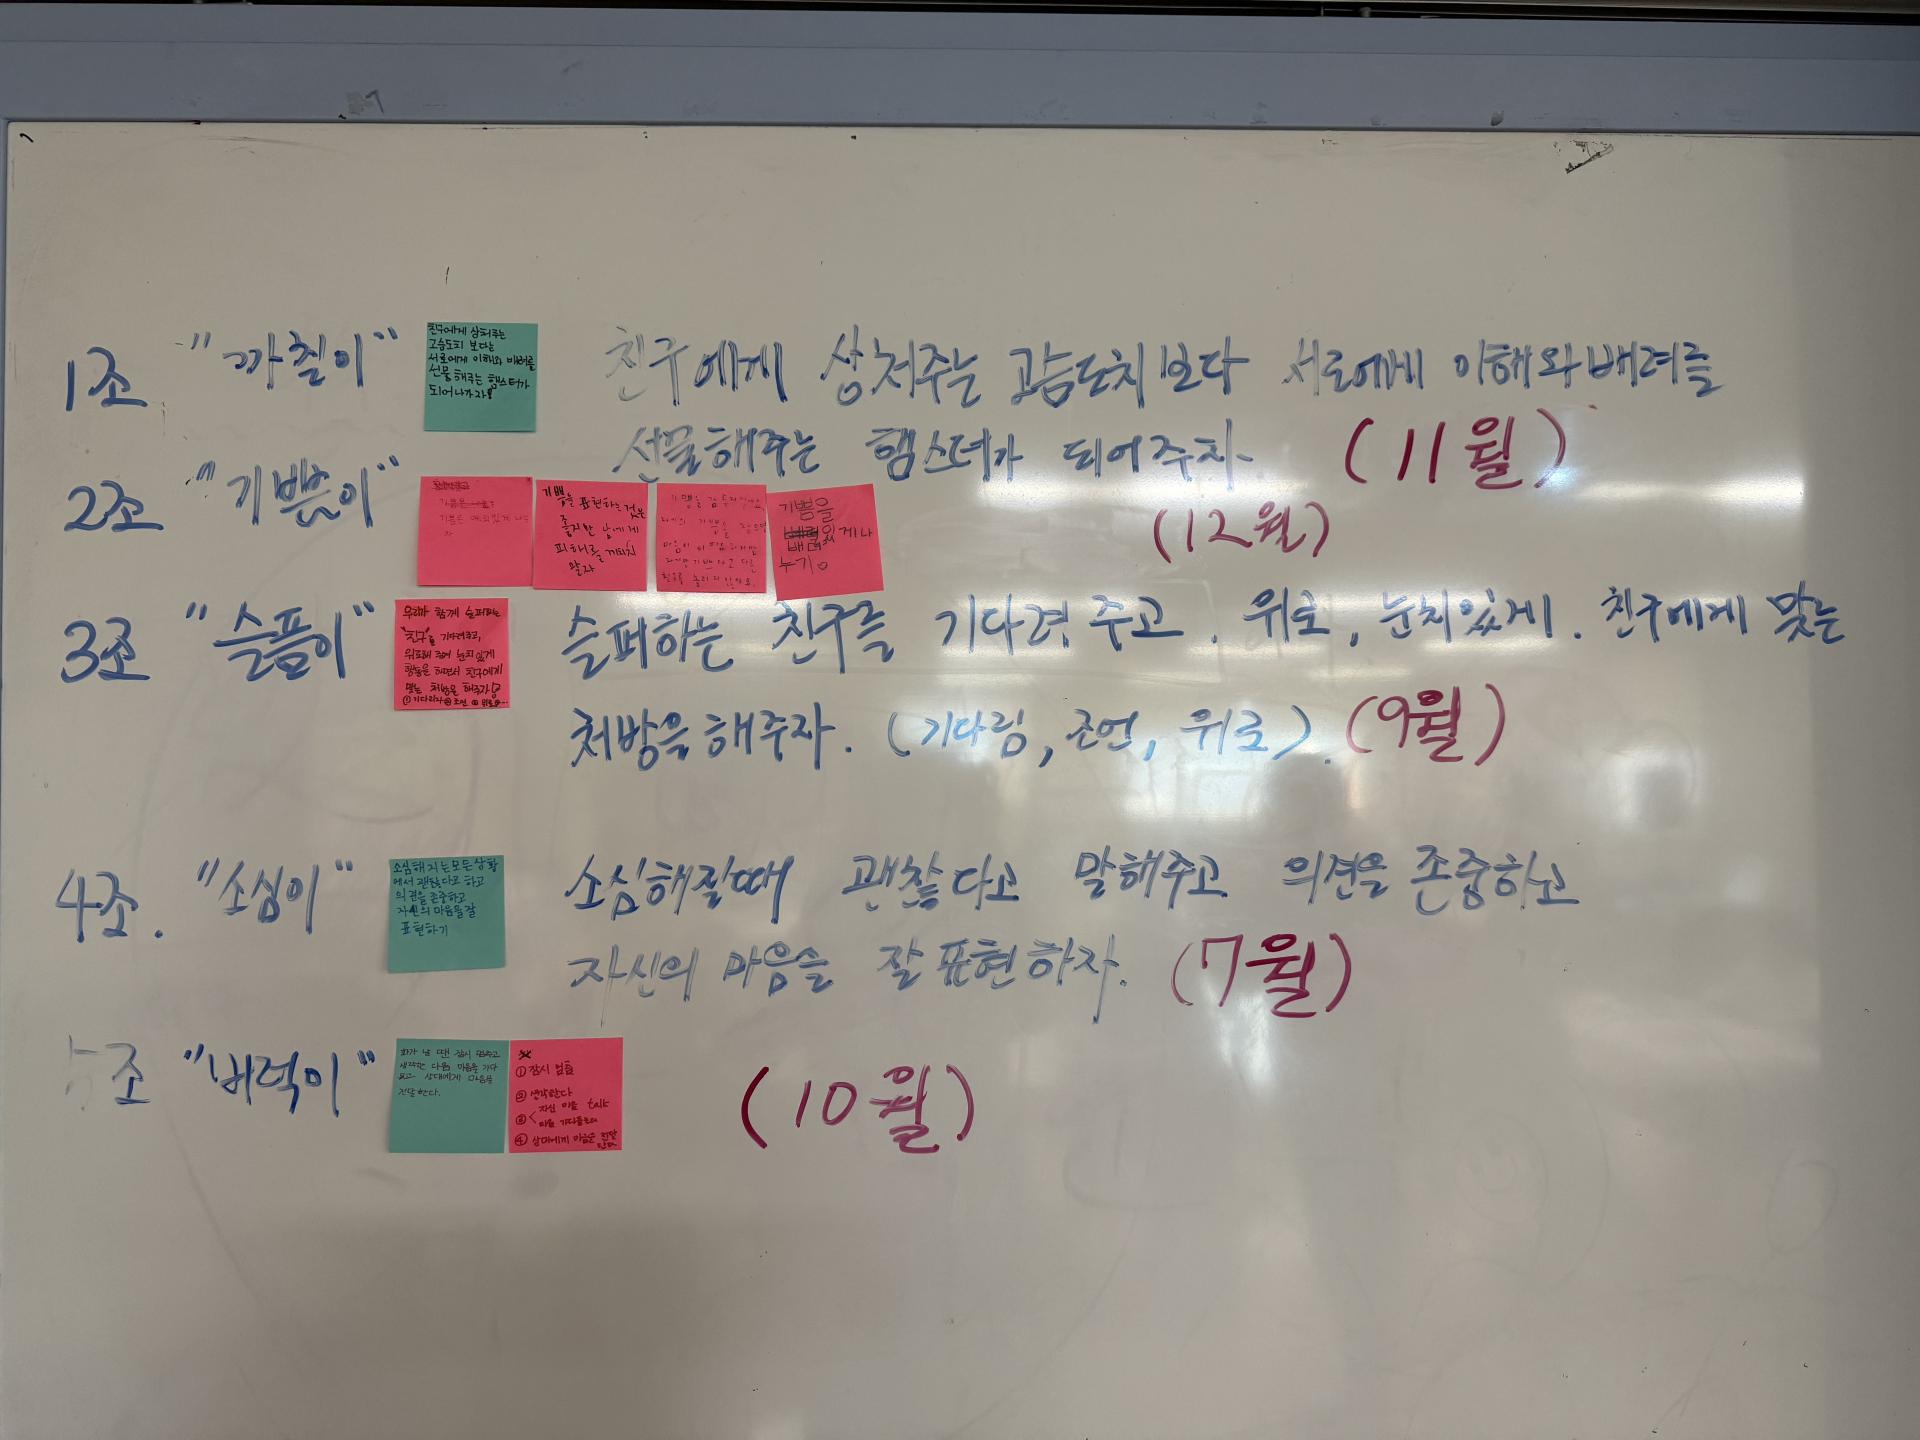 1조 "까칠이"
친구에게 상처주는
고슴도치 보다는
서로에게 이해와 배려를
선물해주는 햄스터가
되어나가자!
친구에게 상처주는 고슴도치보다 서로에게 이해와 배려를
선물해주는 햄스터가 되어주자.
(11월)
2조 "기쁨이"
기쁨은
자
기쁨을 표현하는 것은
좋지만 남에게
피해를 끼치지
말자
기쁨을
배려있게 나
누기
(12월)
3조 "슬픔이"
우리가 함께 슬퍼하는
"친구를 기다려주고,
위로해 주며 눈치 있게
행동을 하면서 친구에게
맞는 처방을 해주자
①기다리자 ②조언 ③위로
슬퍼하는 친구를 기다려주고. 위로, 눈치있게. 친구에게 맞는
처방을 해주자. (기다림, 조언, 위로). (9월)
4조. "소심이"
소심해지는 모든 상황
에서 괜찮다고 하고
의견을 존중하고
자신의 마음을 잘
표현하기
소심해질때 괜찮다고 말해주고 의견을 존중하고
자신의 마음을 잘 표현하자. (7월)
5조 "버럭이"
화가 날 땐 잠시 멈추고
생각한 다음 마음을 가다
듬고 상대에게 마음을
전달한다.
① 잠시 멈춤
② 생각한다
③ 자신 마음 talk
마음 가다듬는다
④ 상대에게 마음을 전달
한다
(10월)